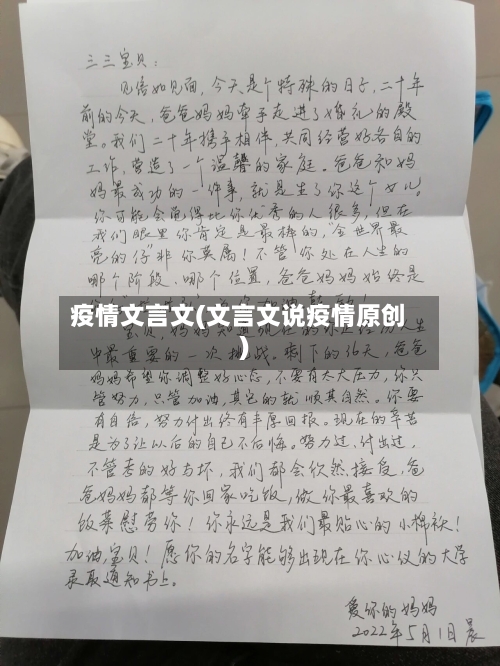 三三宝贝：
见信如见面，今天是个特殊的日子，二十年
前的今天，爸爸妈妈牵手走进了婚礼的殿
堂。我们二十年携手相伴，共同经营好各自的
工作，营造了一个温馨的家庭。爸爸和妈
妈最成功的一件事，就是生了你这个女儿。
你可能会觉得比你优秀的人很多，但在
我们眼里你肯定是最棒的，“全世界最
亮的仔”非你莫属！不管你处在人生的
哪个阶段、哪个位置，爸爸妈妈始终是
疫情文言文(文言文说疫情原创
)
宝贝，妈妈知道现在的你正经历人生
中最重要的一次挑战。剩下的16天，爸爸
妈妈希望你调整好心态，不要有太大压力，你只
管努力，只管加油，其它的就顺其自然。你要
有自信，努力付出终有丰厚回报。现在的辛苦
是为了让以后的自己不后悔。努力过，付出过，
不管考的好与坏，我们都会欣然接受，爸
爸妈妈都等你回家吃饭，做你最喜欢的
饭菜慰劳你！你永远是我们最贴心的小棉袄！
加油，宝贝！愿你的名字能够出现在你心仪的大学
录取通知书上。
爱你的妈妈
2022年5月1日晨